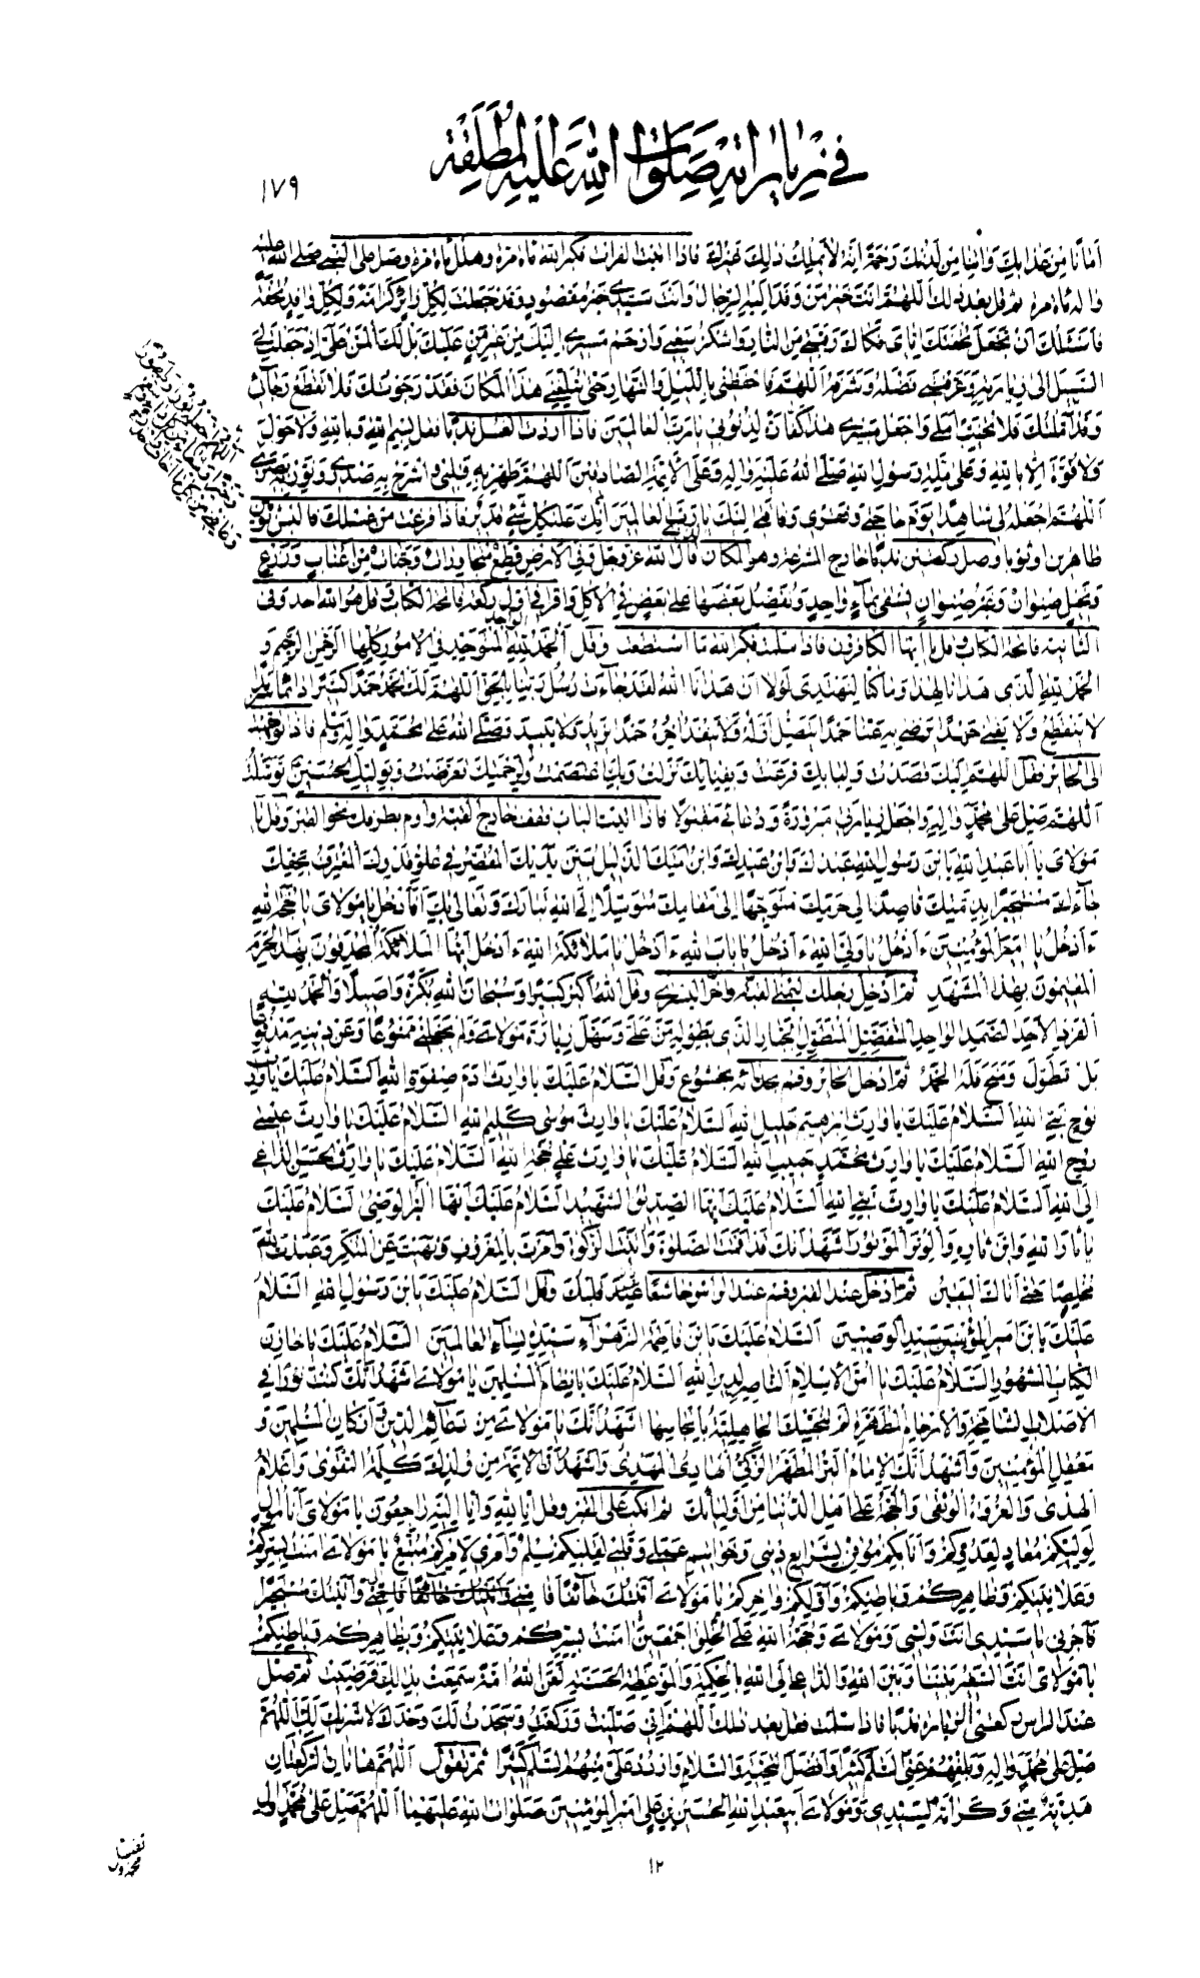 في زياراته صلوات الله عليه المطلقة
١٧٩
اَمانًا مِن عَذابِكَ وَ مِن لَدُنكَ رَحمَةً اِنَّهُ لا يَملِكُ ذلِكَ غَيرُكَ فاذا اتيت الفرات فكبر الله مأة مرة وهلل مأة مرة وصل على النبي صلى الله عليه
واله مأة مرة ثم قل بعد ذلك اَللّهُمَّ اَنتَ خَيرُ مَن وَفَدَ اِلَيهِ الرِّجالُ وَاَنتَ سَيِّدي خَيرُ مَقصُودٍ وَقَد جَعَلتَ لِكُلِّ زائِرٍ كَرامَةً وَلِكُلِّ وافِدٍ تُحفَةً
فَاَسئَلُكَ اَن تَجعَلَ تُحفَتَكَ اِيّايَ فَكاكَ رَقَبَتي مِنَ النّارِ وَاشكُر سَعيي وَارحَم مَسيري اِلَيكَ مِن غَيرِ مَنٍّ عَلَيكَ بَل لَكَ المَنُّ عَلَيَّ اِذ جَعَلتَ لي
السَّبيلَ اِلى زِيارَتِهِ وَعَرَّفتَني فَضلَهُ وَشَرَفَهُ اَللّهُمَّ فَاحفَظني بِاللَّيلِ وَالنَّهارِ حَتّى تُبَلِّغَني هذَا المَكانَ فَقَد رَجَوتُكَ فَلا تَقطَع رَجائي
وَقَد اَمَّلتُكَ فَلا تُخَيِّب اَمَلي وَاجعَل مَسيري هذا كَفّارَةً لِذُنُوبي يا رَبَّ العالَمينَ فاذا اردت الغسل ندبا فقل بِسمِ اللهِ وَبِاللهِ وَلا حَولَ
وَلا قُوَّةَ اِلّا بِاللهِ وَعَلى مِلَّةِ رَسُولِ اللهِ صَلَّى اللهُ عَلَيهِ وَالِهِ وَعَلَى الاَئِمَّةِ الصّادِقينَ اَللّهُمَّ طَهِّر بِهِ قَلبي وَاشرَح بِهِ صَدري وَنَوِّر بِهِ بَصَري
اَللّهُمَّ اجعَلهُ لي شاهِدًا يَومَ حاجَتي وَفَقري وَفاقَتي اِلَيكَ يا رَبَّ العالَمينَ اِنَّكَ عَلى كُلِّ شَيءٍ قَديرٌ فاذا فرغت من غسلك فالبس ثوبين
طاهرين او ثوبا وصل ركعتين ندبا خارج المشرعة وهو المكان قال الله عز وجل وَفِي الاَرضِ قِطَعٌ مُتَجاوِراتٌ وَجَنّاتٌ مِن اَعنابٍ وَزَرعٌ
وَنَخيلٌ صِنوانٌ وَغَيرُ صِنوانٍ يُسقى بِماءٍ واحِدٍ وَنُفَضِّلُ بَعضَها عَلى بَعضٍ فِي الاُكُلِ واقرأ في اول ركعة فاتحة الكتاب وقل هو الله احد وفي
الثانية فاتحة الكتاب وقل يا ايها الكافرون فاذا سلمت فكبر الله ما استطعت وقل اَلحَمدُ لِلّهِ الواحِدِ المُتَوَحِّدِ فِي الاُمُورِ كُلِّها الرَّحمنِ الرَّحيمِ وَ
الحَمدُ لِلّهِ الَّذي هَدانا لِهذا وَما كُنّا لِنَهتَدِيَ لَولا اَن هَدانَا اللهُ لَقَد جاءَت رُسُلُ رَبِّنا بِالحَقِّ اَللّهُمَّ لَكَ الحَمدُ حَمدًا كَثيرًا دائِمًا
لا يَنقَطِعُ وَلا يَفنى حَمدًا تَرضى بِهِ عَنّا حَمدًا يَتَّصِلُ اَوَّلُهُ وَلا يَنفَدُ اخِرُهُ حَمدًا يَزيدُ وَلا يَبيدُ وَصَلَّى اللهُ عَلى مُحَمَّدٍ وَالِهِ وَسَلَّمَ فاذا توجهت
الى الحائر فقل اَللّهُمَّ اِلَيكَ قَصَدتُ وَلِبابِكَ قَرَعتُ وَبِفِنائِكَ نَزَلتُ وَبِكَ اعتَصَمتُ وَلِرَحمَتِكَ تَعَرَّضتُ وَبِوَلِيِّكَ الحُسَينِ تَوَسَّلتُ
اَللّهُمَّ صَلِّ عَلى مُحَمَّدٍ وَالِهِ وَاجعَل زِيارَتي مَبرُورَةً وَدُعائي مَقبُولًا فاذا اتيت الباب فقف خارج القبة وارم بطرفك نحو القبر وقل يا
مَولايَ يا اَبا عَبدِ اللهِ يَا بنَ رَسُولِ اللهِ عَبدُكَ وَابنُ عَبدِكَ وَابنُ اَمَتِكَ الذَّليلُ بَينَ يَدَيكَ المُقَصِّرُ في عُلُوِّ قَدرِكَ المُعتَرِفُ بِحَقِّكَ
جاءَكَ مُستَجيرًا بِذِمَّتِكَ قاصِدًا اِلى حَرَمِكَ مُتَوَجِّهًا اِلى مَقامِكَ مُتَوَسِّلًا اِلَى اللهِ تَبارَكَ وَتَعالى بِكَ ءَاَدخُلُ يا مَولايَ يا حُجَّةَ اللهِ
ءَاَدخُلُ يا اَميرَ المُؤمِنينَ ءَاَدخُلُ يا وَلِيَّ اللهِ ءَاَدخُلُ يا بابَ اللهِ ءَاَدخُلُ يا مَلائِكَةَ اللهِ ءَاَدخُلُ اَيَّتُهَا المَلائِكَةُ المُحدِقُونَ بِهذَا الحَرَمِ
المُقيمُونَ بِهذَا المَشهَدِ ثم ادخل رجلك اليمنى القبة واخر اليسرى وقل اَللهُ اَكبَرُ كَبيرًا وَسُبحانَ اللهِ بُكرَةً وَاَصيلًا وَالحَمدُ لِلّهِ
الفَردِ الاَحَدِ الصَّمَدِ الواحِدِ المُتَفَضِّلِ المُتَطَوِّلِ الجَبّارِ الَّذي بِطَولِهِ مَنَّ عَلَيَّ وَسَهَّلَ زِيارَةَ مَولايَ وَلَم يَجعَلني مَمنُوعًا وَعَن ذِمَّتِهِ مَدفُوعًا
بَل تَطَوَّلَ وَمَنَحَ فَلَهُ الحَمدُ ثم ادخل الحائر وقم بحذائه بخشوع وقل اَلسَّلامُ عَلَيكَ يا وارِثَ ادَمَ صِفوَةِ اللهِ اَلسَّلامُ عَلَيكَ يا وارِثَ
نُوحٍ نَبِيِّ اللهِ اَلسَّلامُ عَلَيكَ يا وارِثَ اِبرهيمَ خَليلِ اللهِ اَلسَّلامُ عَلَيكَ يا وارِثَ مُوسى كَليمِ اللهِ اَلسَّلامُ عَلَيكَ يا وارِثَ عيسى
رُوحِ اللهِ اَلسَّلامُ عَلَيكَ يا وارِثَ مُحَمَّدٍ حَبيبِ اللهِ اَلسَّلامُ عَلَيكَ يا وارِثَ عَلِيٍّ حُجَّةِ اللهِ اَلسَّلامُ عَلَيكَ يا وارِثَ الحَسَنِ الدّاعي
اِلَى اللهِ اَلسَّلامُ عَلَيكَ يا وارِثَ نَبِيِّ اللهِ اَلسَّلامُ عَلَيكَ اَيُّهَا الصِّدّيقُ الشَّهيدُ اَلسَّلامُ عَلَيكَ اَيُّهَا البَرُّ الوَصِيُّ اَلسَّلامُ عَلَيكَ
يا ثارَ اللهِ وَابنَ ثارِهِ وَالوِترَ المَوتُورَ اَشهَدُ اَنَّكَ قَد اَقَمتَ الصَّلوةَ وَاتَيتَ الزَّكوةَ وَاَمَرتَ بِالمَعرُوفِ وَنَهَيتَ عَنِ المُنكَرِ وَعَبَدتَ اللهَ
مُخلِصًا حَتّى اَتاكَ اليَقينُ ثم ادخل عند القبر وقم عند الراس خاشعا قلبك وقل اَلسَّلامُ عَلَيكَ يَا بنَ رَسُولِ اللهِ اَلسَّلامُ
عَلَيكَ يَا بنَ اَميرِ المُؤمِنينَ سَيِّدِ الوَصِيّينَ اَلسَّلامُ عَلَيكَ يَا بنَ فاطِمَةَ الزَّهراءِ سَيِّدَةِ نِساءِ العالَمينَ اَلسَّلامُ عَلَيكَ يا خازِنَ
الكِتابِ المَشهُودِ اَلسَّلامُ عَلَيكَ يا اَمينَ الاِسلامِ النّاصِرَ لِدينِ اللهِ اَلسَّلامُ عَلَيكَ يا نِظامَ المُسلِمينَ يا مَولايَ اَشهَدُ اَنَّكَ كُنتَ نُورًا فِي
الاَصلابِ الشّامِخَةِ وَالاَرحامِ المُطَهَّرَةِ لَم تُنَجِّسكَ الجاهِلِيَّةُ بِاَنجاسِها اَشهَدُ اَنَّكَ يا مَولايَ مِن دَعائِمِ الدّينِ وَاَركانِ المُسلِمينَ وَ
مَعقِلِ المُؤمِنينَ وَاَشهَدُ اَنَّكَ الاِمامُ البَرُّ المُطَهَّرُ الزَّكِيُّ الهادِي المَهدِيُّ وَاَشهَدُ اَنَّ الاَئِمَّةَ مِن وُلدِكَ كَلِمَةُ التَّقوى وَاَعلامُ
الهُدى وَالعُروَةُ الوُثقى وَالحُجَّةُ عَلى اَهلِ الدُّنيا مِن اَولِيائِكَ ثم انكب على القبر وقل اِنّا لِلّهِ وَاِنّا اِلَيهِ راجِعُونَ يا مَولايَ اَنَا مُوالٍ
لِوَلِيِّكُم مُعادٍ لِعَدُوِّكُم وَاَنَا بِكُم مُوقِنٌ بِشَرائِعِ ديني وَخَواتيمِ عَمَلي وَقَلبي لِقَلبِكُم سِلمٌ وَاَمري لِاَمرِكُم مُتَّبِعٌ يا مَولايَ امَنتُ بِسِرِّكُم
وَعَلانِيَتِكُم وَظاهِرِكُم وَباطِنِكُم وَاَوَّلِكُم وَاخِرِكُم يا مَولايَ اَتَيتُكَ خائِفًا فَامِنّي وَاَتَيتُكَ مُستَجيرًا
فَاَجِرني يا سَيِّدي اَنتَ وَلِيّي وَمَولايَ وَحُجَّةُ اللهِ عَلَى الخَلقِ اَجمَعينَ امَنتُ بِسِرِّكُم وَعَلانِيَتِكُم وَبِظاهِرِكُم وَباطِنِكُم
يا مَولايَ اَنتَ السَّفيرُ بَينَنا وَبَينَ اللهِ وَالدّاعي اِلَى اللهِ بِالحِكمَةِ وَالمَوعِظَةِ الحَسَنَةِ لَعَنَ اللهُ اُمَّةً سَمِعَت بِذلِكَ فَرَضِيَت ثم صل
عند الراس ركعتي الزيارة ندبا فاذا سلمت فقل بعد ذلك اَللّهُمَّ اِنّي صَلَّيتُ وَرَكَعتُ وَسَجَدتُ لَكَ وَحدَكَ لا شَريكَ لَكَ اَللّهُمَّ
صَلِّ عَلى مُحَمَّدٍ وَالِهِ وَبَلِّغهُم عَنّي السَّلامَ كَثيرًا وَاَفضَلَ التَّحِيَّةِ وَالسَّلامِ وَاردُد عَلَيَّ مِنهُمُ السَّلامَ كَثيرًا ثم تقول اَللّهُمَّ هاتانِ الرَّكعَتانِ
هَدِيَّةٌ مِنّي وَكَرامَةٌ لِسَيِّدي وَمَولايَ اَبي عَبدِ اللهِ الحُسَينِ بنِ عَلِيٍّ اَميرِ المُؤمِنينَ صَلَواتُ اللهِ عَلَيهِما اَللّهُمَّ صَلِّ عَلى مُحَمَّدٍ وَالِهِ
١٢